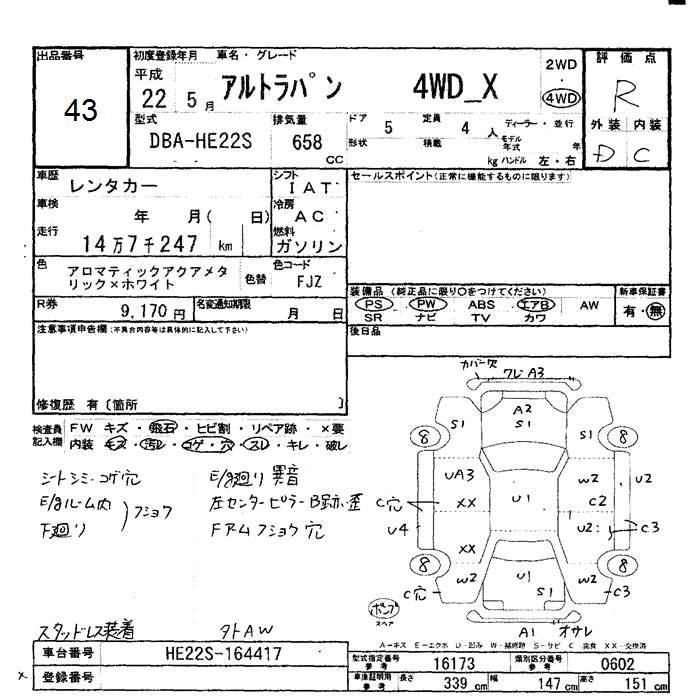 出品番号
43
初度登録年月 車名・グレード
平成
22 5 月
アルトラパン 4WD_X
2WD
・
4WD
評 価 点
R
外装 内装
D C
型式
DBA-HE22S
排気量
658 CC
ドア 5 定員 4 人
ディーラー・並行
形状 積載 kg
モデル年式 年
ハンドル 左・右
車歴 レンタカー
シフト IAT
セールスポイント(正常に機能するものに限ります)
車検 年 月( 日)
冷房 AC
走行 14万7千247 km
燃料 ガソリン
色 アロマティックアクアメタ
リック×ホワイト
色替
色コード FJZ
装備品 (純正品に限り○をつけてください)
PS PW ABS エアB AW
SR ナビ TV カワ
新車保証書
有・無
R券 9,170 円
名変通知期限 月 日
後日品
注意事項申告欄(不具合内容等は具体的に記入して下さい)
修復歴 有〔箇所 〕
検査員記入欄
FW キズ・飛石・ヒビ割・リペア跡・×要
内装 キズ・汚レ・コゲ・穴・スレ・キレ・破レ
シートシミ・コゲ穴
E/gルーム内
下廻り
フショウ
E/g廻り異音
左センターピラーB跡歪
FアームフショウC穴
スタッドレス装着
外AW
カバー欠
ワレ A3
A2
S1
S1
S1
8
8
UA3
XX
C穴
U4
XX
U1
W2
C2
U2
U2
C3
8
8
W2
C穴
U1
S1
W2
C3
ポンプ
スペア
A1 オサレ
A-キズ E-エクボ U-凹み W-補修跡 S-サビ C 腐食 XX-交換済
車台番号 HE22S-164417
× 登録番号
型式指定番号 参考 16173
類別区分番号 参考 0602
車庫証明用 参考
長さ 339 cm 幅 147 cm 高さ 151 cm